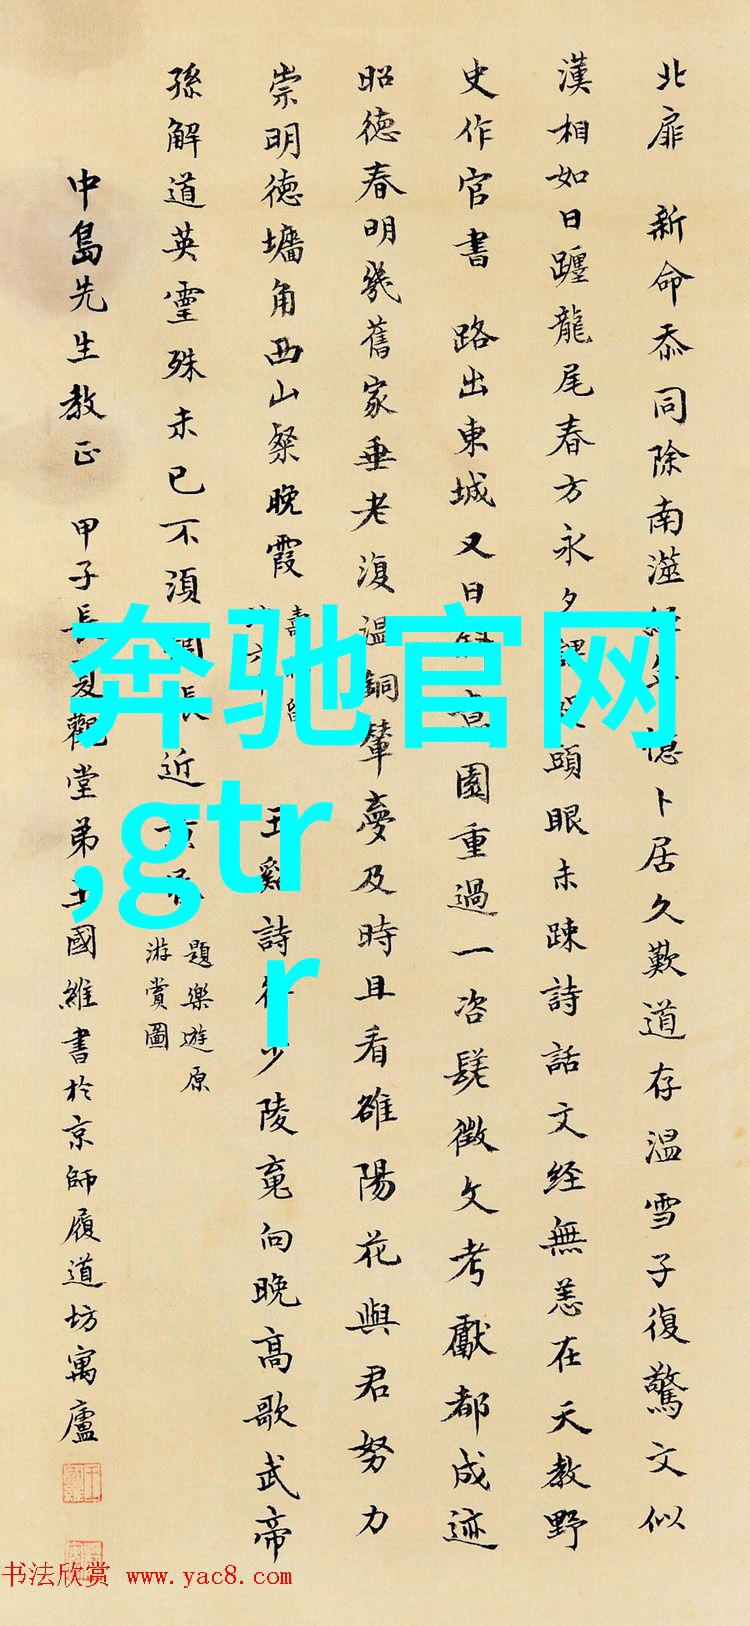 北扉 新命忝同除南澨
卜居久歎道存温雪子復驚文似
漢相如日躔龍尾春方永夕
頭眼未疎詩話文经無恙在天教野
史作官書 路出東城又日
園重過一咨嗟徵文考獻都成迹
昭德春明幾舊家垂老復温銅輦夢及時且看雒陽花與君努力
崇明德墉角西山粲晚霞
詩
少陵竟向晚高歌武帝
孫解道英靈殊未已不須
長近
題樂遊原
游賞圖
中島先生教正 甲子長夏觀堂弟王國維書於京師履道坊寓廬
奔驰官网
,gtr
r
书法欣赏 www.yac8.com